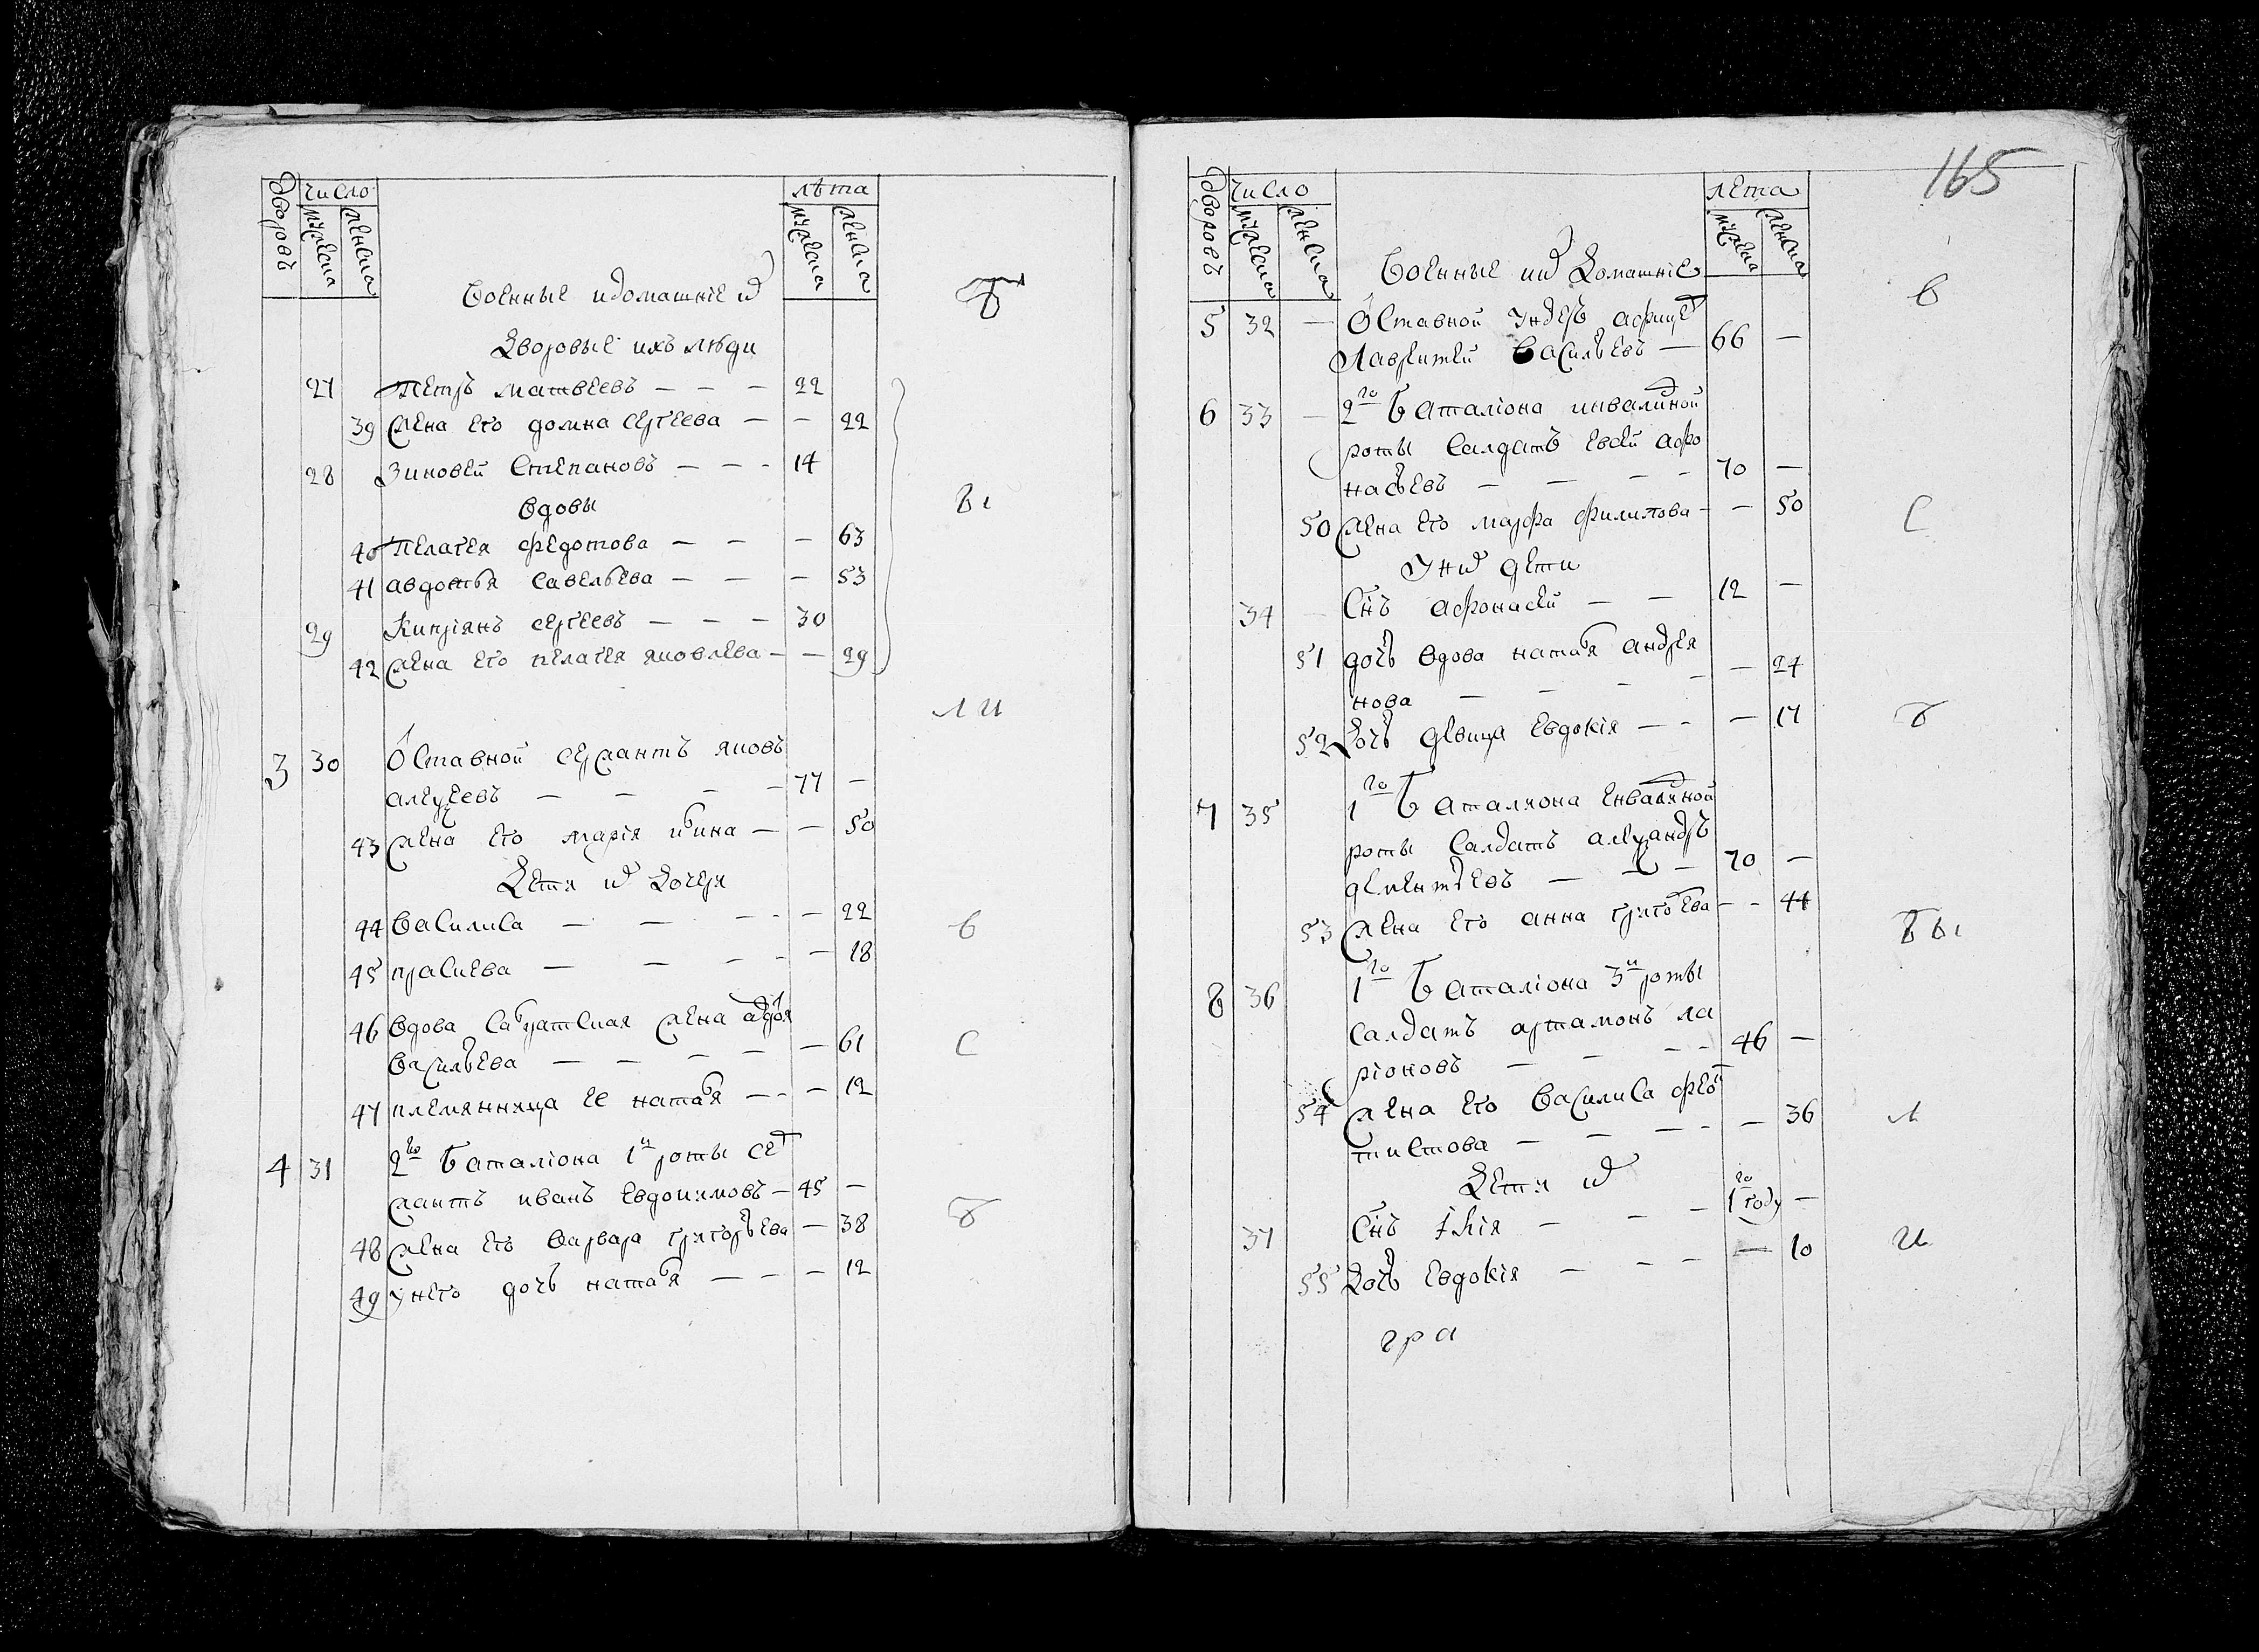 дворовъ число лѣта
мужеска женска мужеска женска
Военные и домашніе их
Дворовые ихъ люди
27 Петръ Матвеевъ — — — 22
39 Жена его Домна Сергеева — — 22
28 Зиновей Степановъ — — - 14
Вдовы
40 Пелагея Федотова — — — 63
41 Авдотья Савельева — — — 53
29 Кипріянъ Сергеевъ — — — 30
42 Жена его Пелагея Яковлева — — 29
3 30 Отставной сержантъ Яковъ
Алеѯеевъ — — — — 77 —
43 Жена его Марія — — 50
Дети их дочери
44 Василиса — — - - — 22
45 Праскева — — - - — 18
46 Вдова жена Авдотя
Васильева — — — — — 61
47 племянница ее Наталя — - — 12
4 31 2го Баталіона 1й роты сер
жантъ Иванъ Евдокимовъ — 45 —
48 Жена ег Варвара Григорьева — 38
49 у него дочь Наталя — — — 12
вы
ли
в
с
165
дворовъ число лета
мужеска женска мужеска женска
Военные их Домашніе
в
5 32 — Отставной ундеръ афицер
Лаврентей Васильевъ — 66 —
6 33 — 2го Баталіона инвалидной
роты Салдатъ Евсей Афо
насьевъ — — — - 70 —
50 Жена его Марфа Филипова - — 50
с
У них дети
34 Снъ Афонасей — — 12 —
51 дочь вдова Наталя Андрея
нова — - - - — 24
52 Дочь девица Евдокія — - — 17
7 35 1го Баталиона енвалидной
роты Салдатъ Алеѯандръ
Дементьевъ — — — 70 —
53 Жена его Анна Григорева - - 44
8 36 1го Баталіона 3й роты
Салдатъ Артамонъ Ла
ріоновъ — - - - 46 —
54 Жена его Василиса Фео
тистова — — — - — 36
л
Дети их
37 Снъ Илія — - — 1го году —
и
55 Дочь Евдокія — - — — 10
гра